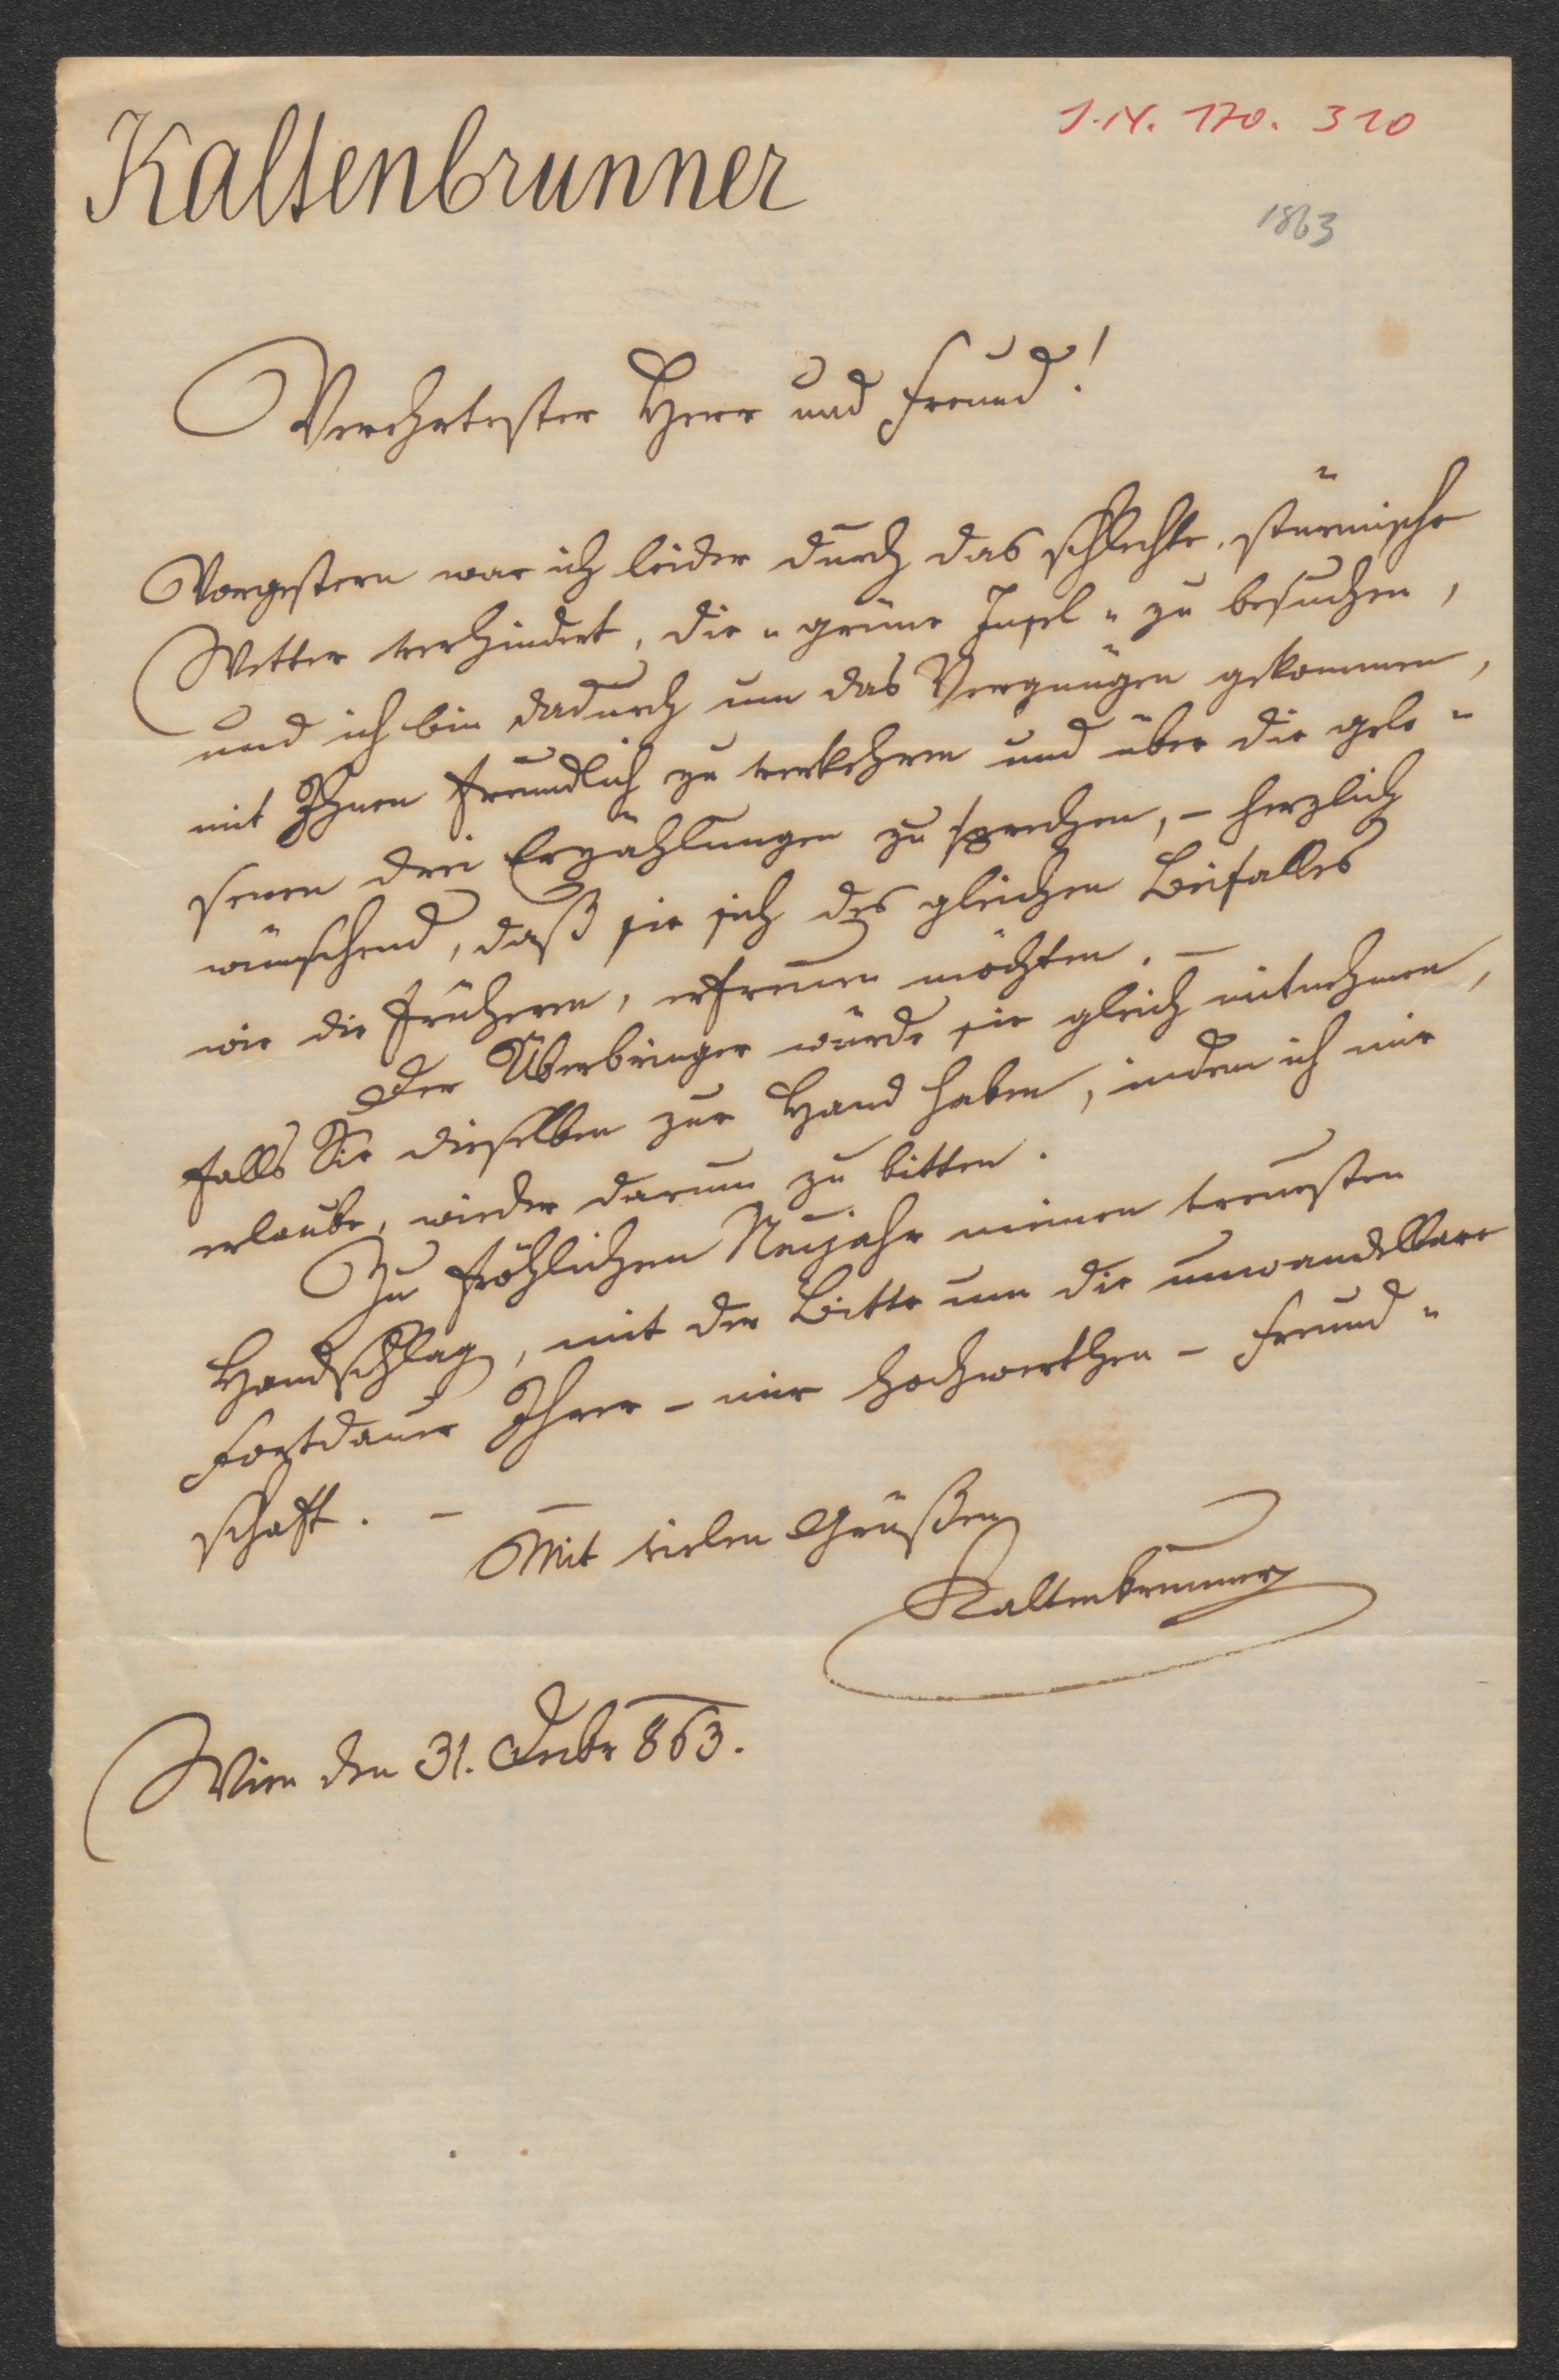 Kaltenbrunner
J.N. 170.310
1863
Verehrtester Herr und Freund!
Vorgestern war ich leider durch das schlechte, stürmische
Wetter verhindert, die "grüne Insel" zu besuchen,
und ich bin dadurch um das Vergnügen gekommen,
mit Ihnen freundlich zu verkehren und über die gele=
senen drei Erzählungen zu sprechen, – herzlich
wünschend, daß sie sich des gleichen Beifalles
wie die früheren, erfreuen möchten. –
Der Überbringer würde sie gleich mitnehmen,
falls Sie dieselben zur Hand haben, indem ich mir
erlaube, wieder darum zu bitten.
Zu fröhlichem Neujahr meinen treuesten
Handschlag, mit der Bitte um die unwandelbare
Fortdauer Ihrer – mir hochwerthen – Freund=
schaft. – –
Mit vielen Grüßen
Kaltenbrunner
Wien den 31. Dezbr 863.